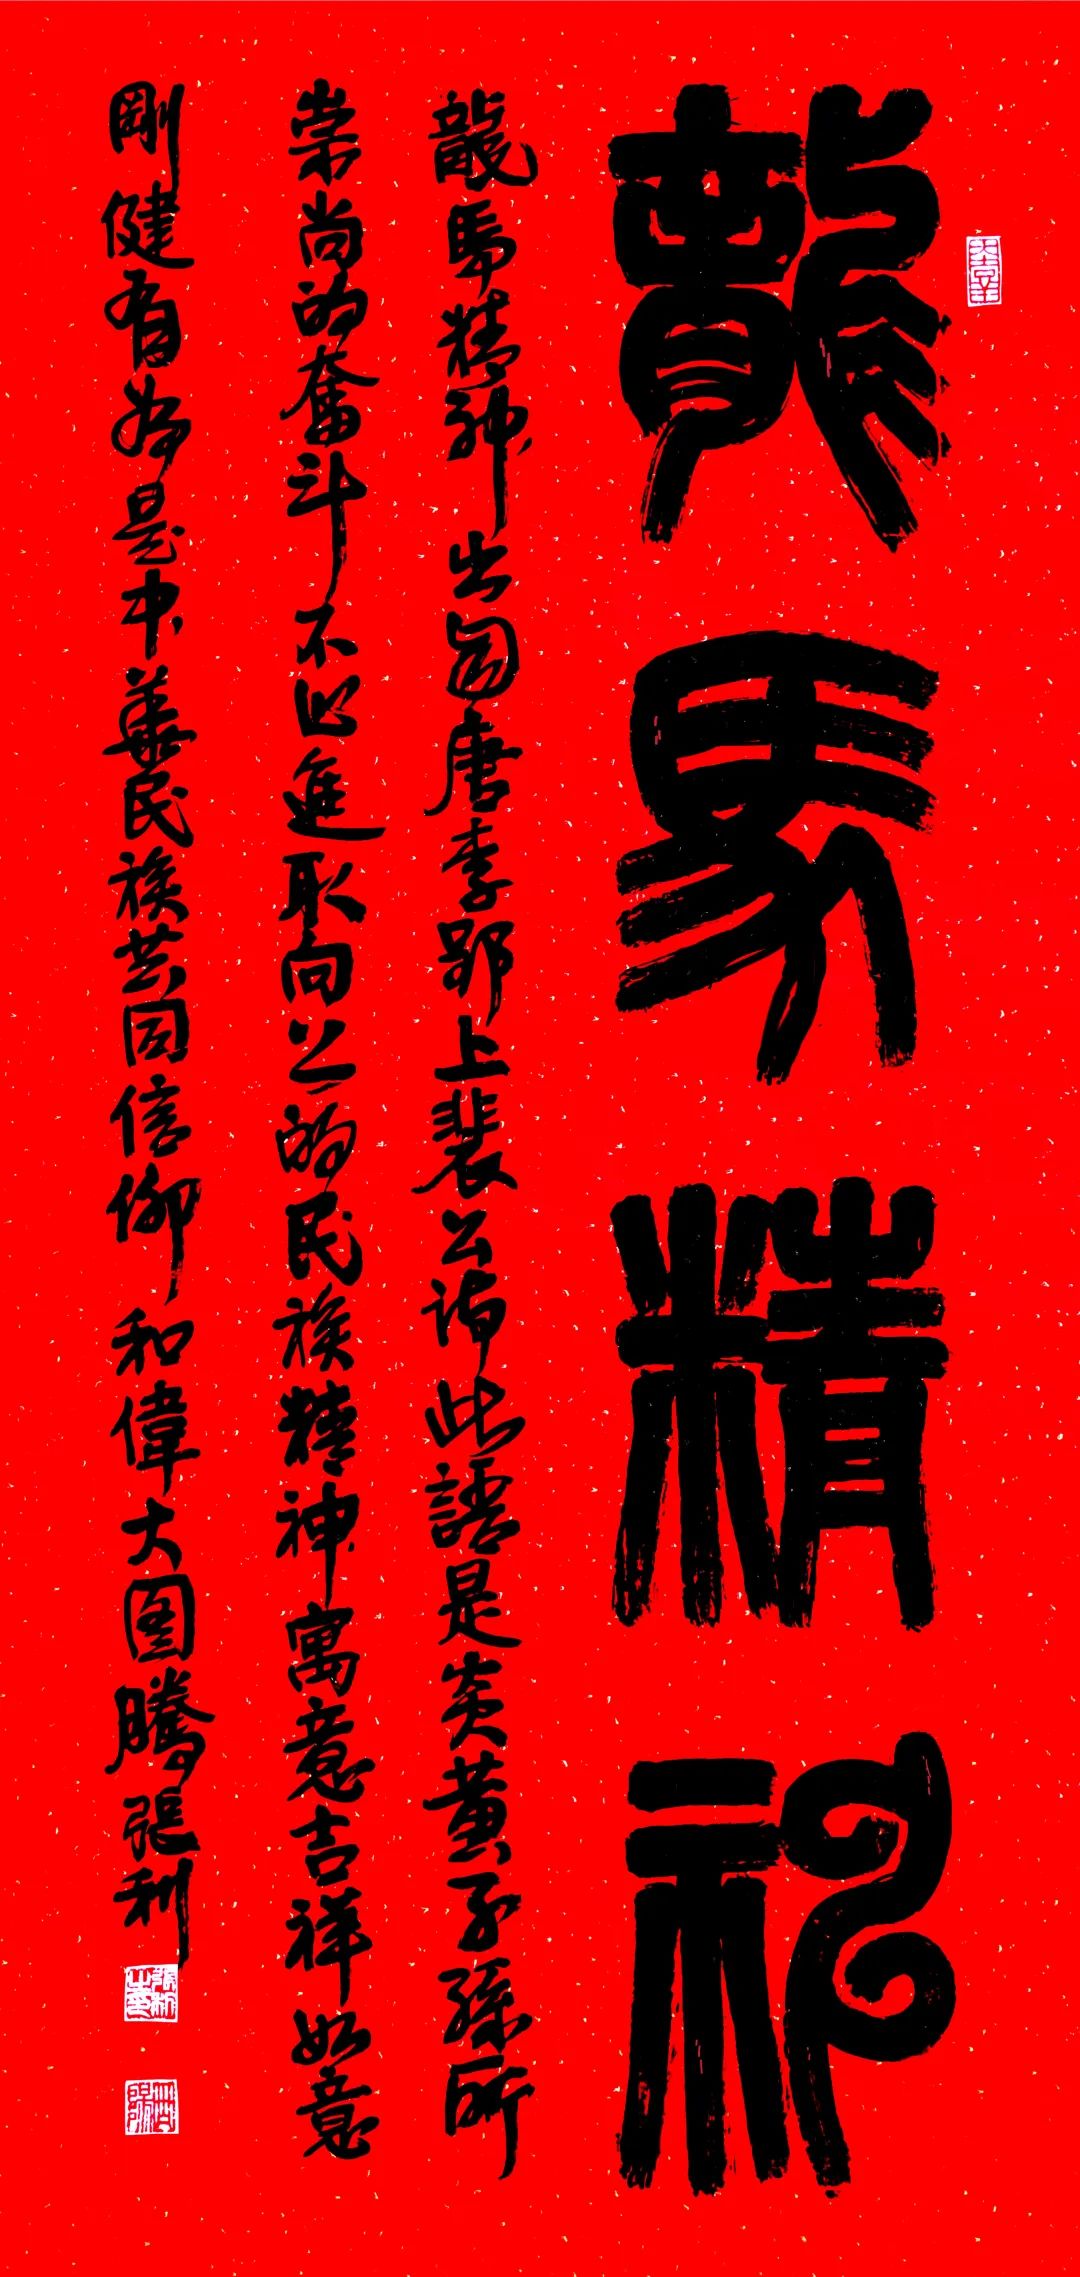 龍馬精神
龍馬精神出自唐李郢上裴公詩此語是炎黃子孫所
崇尚的奮斗不止進取向上的民族精神寓意吉祥如意
剛健有為是中華民族共同信仰和偉大图騰張利